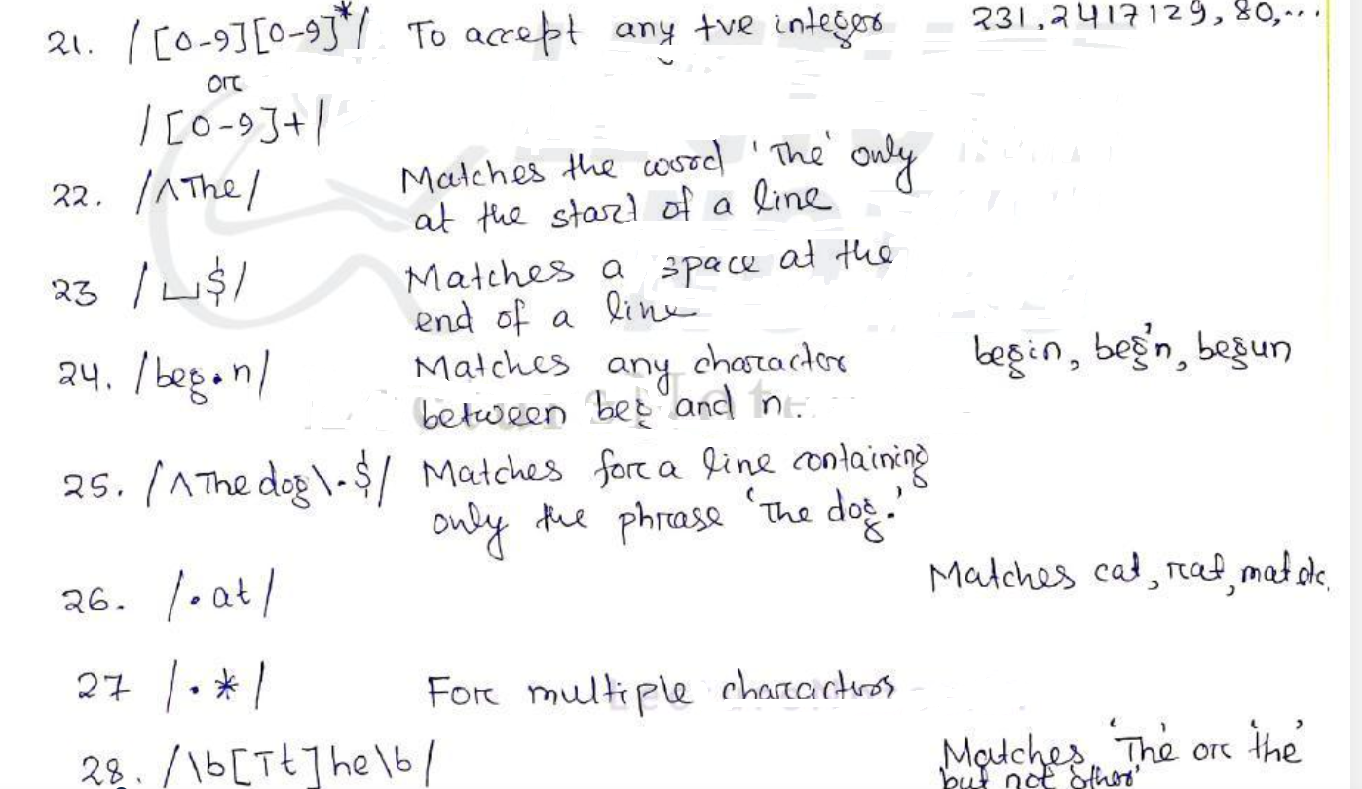 21. /[0-9][0-9]*/ To accept any +ve integer 231, 2417129, 80,...
or
/[0-9]+/
22. /^The/ Matches the word 'The' only
at the start of a line
23 /␣$/ Matches a space at the
end of a line
24. /beg.n/ Matches any character begin, beg'n, begun
between beg and n.
25. /^The dog\.$/ Matches for a line containing
only the phrase 'The dog.'
26. /.at/ Matches cat, rat, mat etc.
27 /.*/ For multiple characters
28. /\b[Tt]he\b/ Matches 'The' or 'the'
but not 'other'